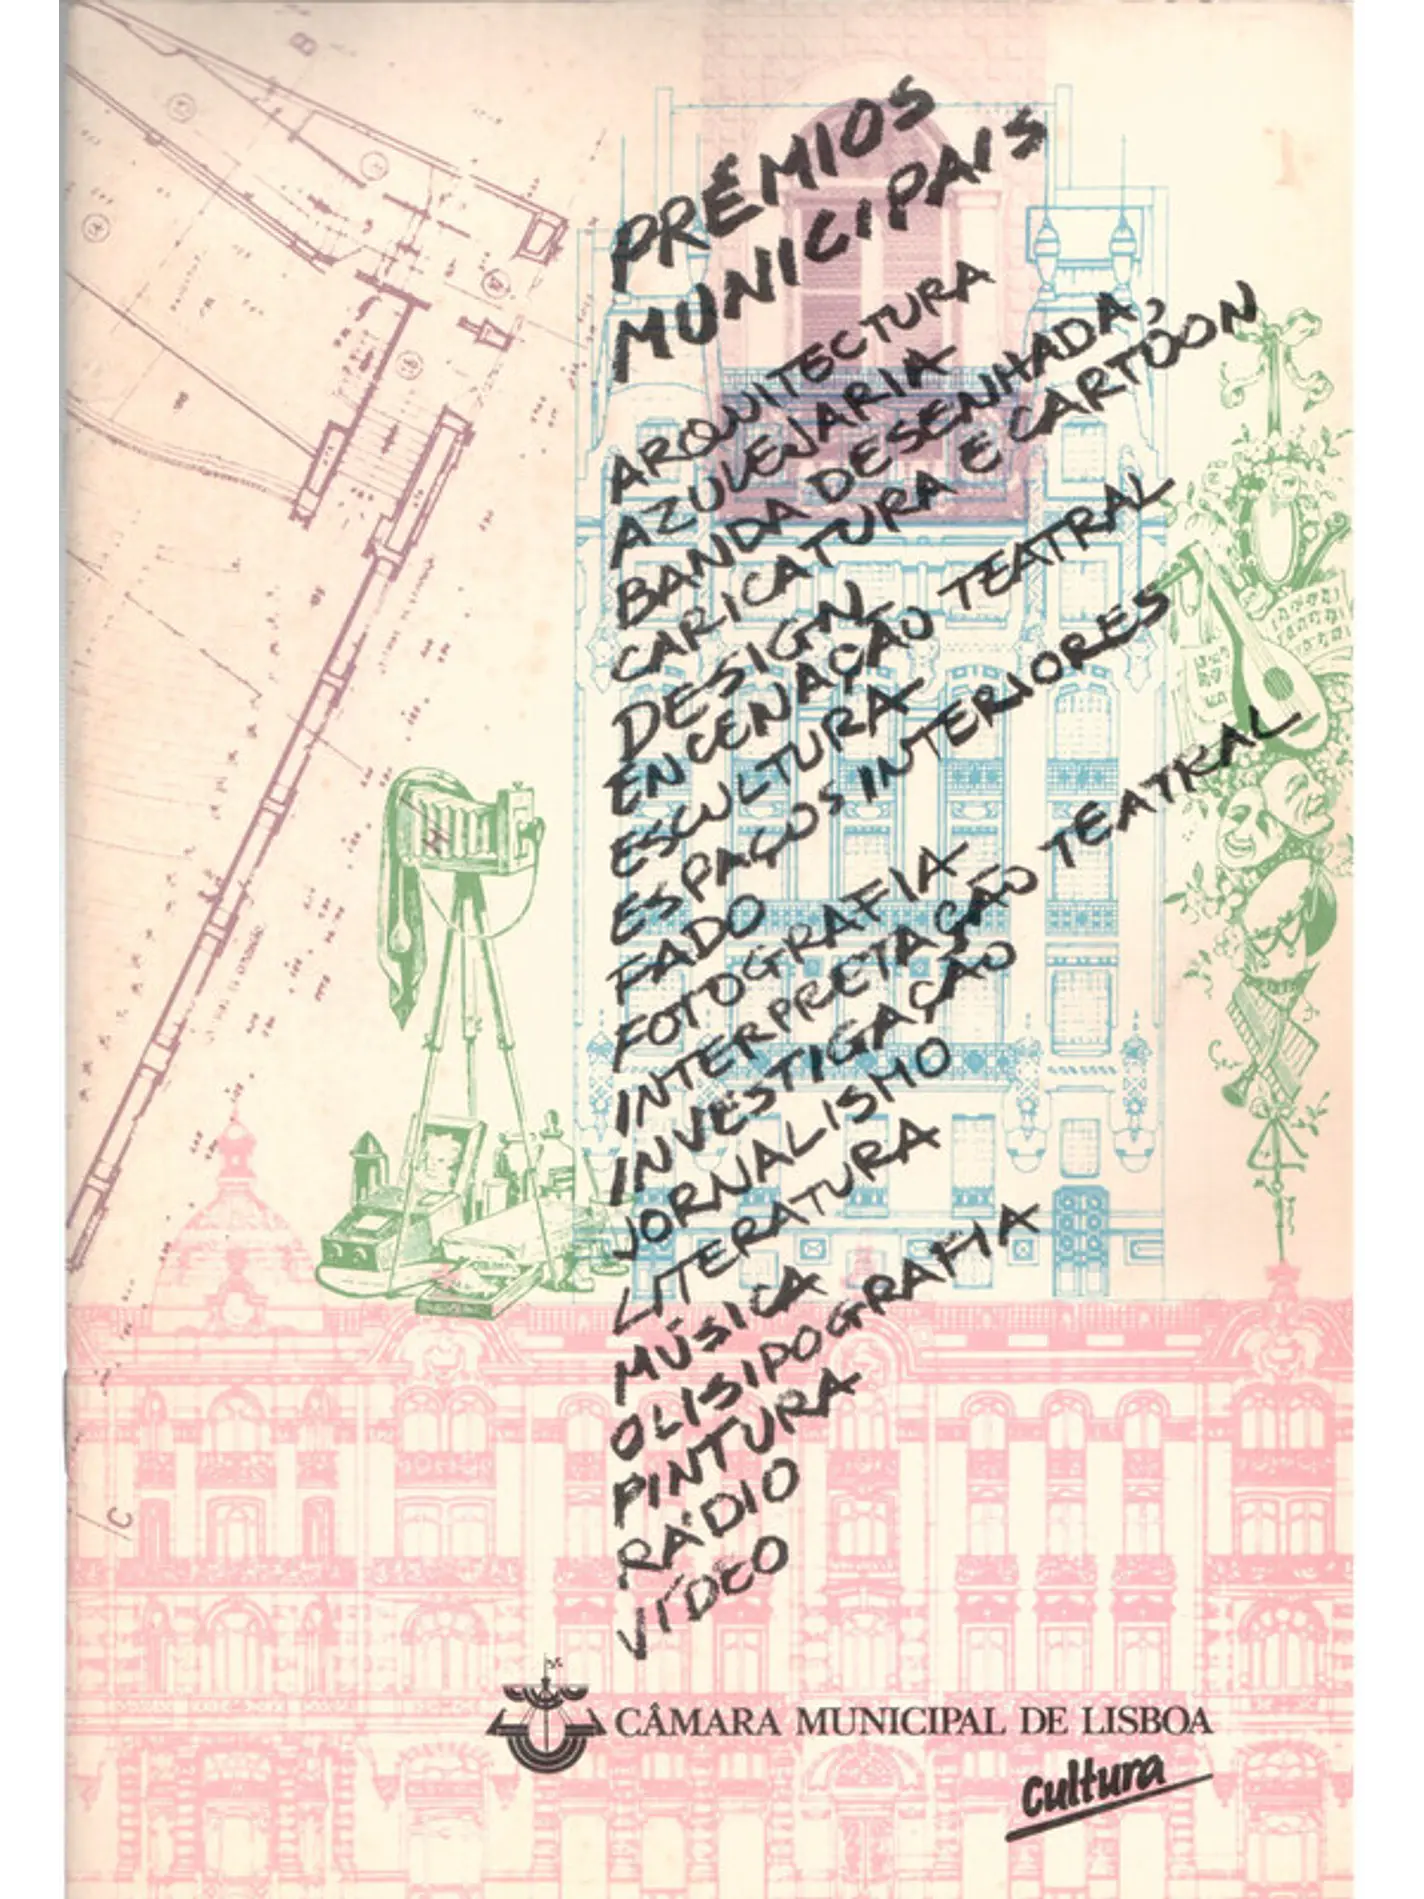 PRÉMIOS
MUNICIPAIS
ARQUITECTURA
AZULEJARIA
BANDA DESENHADA,
CARICATURA E CARTOON
DESIGN
ENCENAÇÃO TEATRAL
ESCULTURA
ESPAÇOS INTERIORES
FADO
FOTOGRAFIA
INTERPRETAÇÃO TEATRAL
INVESTIGAÇÃO
JORNALISMO
LITERATURA
MÚSICA
OLISIPOGRAFIA
PINTURA
RÁDIO
VÍDEO
CÂMARA MUNICIPAL DE LISBOA
cultura